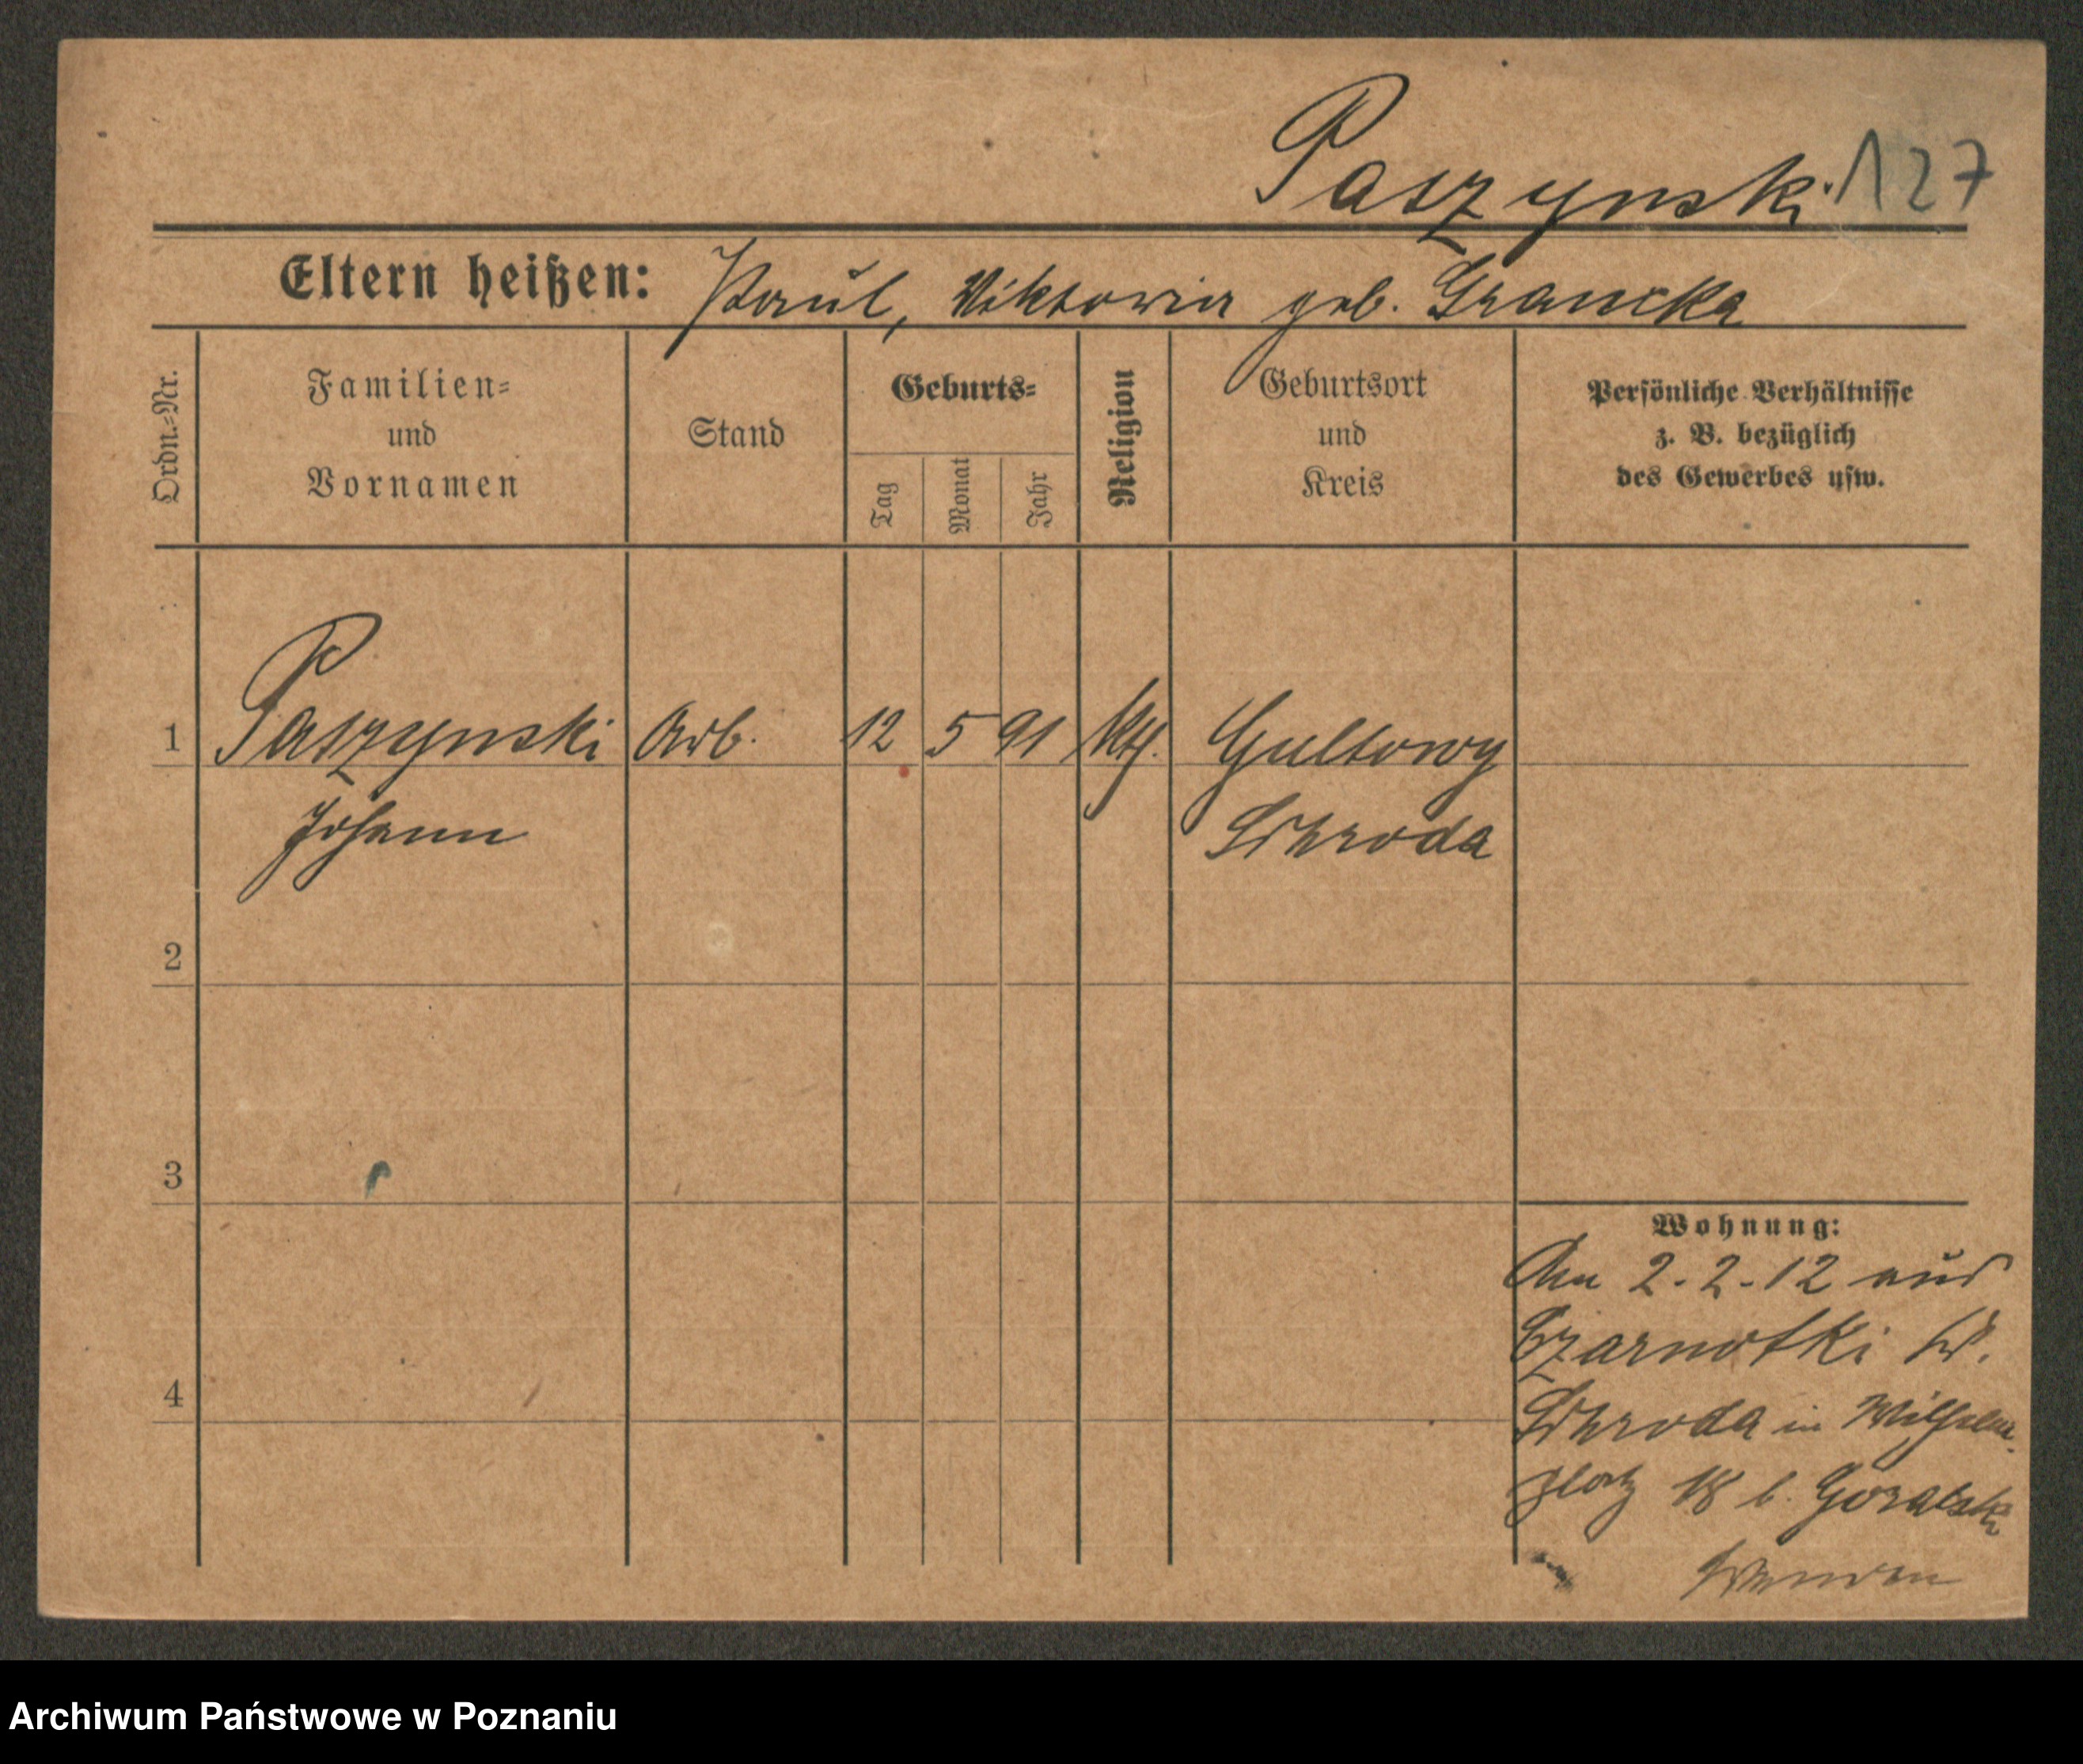 Paszynski 127
Eltern heißen: Paul, Viktoria geb. Grancka
Ordn.=Nr.
Familien=
und
Vornamen
Stand
Geburts=
Tag
Monat
Jahr
Religion
Geburtsort
und
Kreis
Persönliche Verhältnisse
z. B. bezüglich
des Gewerbes usw.
1 Paszynski Arb. 12 5 91 kth. Gultowy
Johann Schroda
2
3
4
Wohnung:
Am 2.2.12 aus
Czarnotki
Schroda in Wilhelm
platz 18 b. Goralski
Wenden
Archiwum Państwowe w Poznaniu